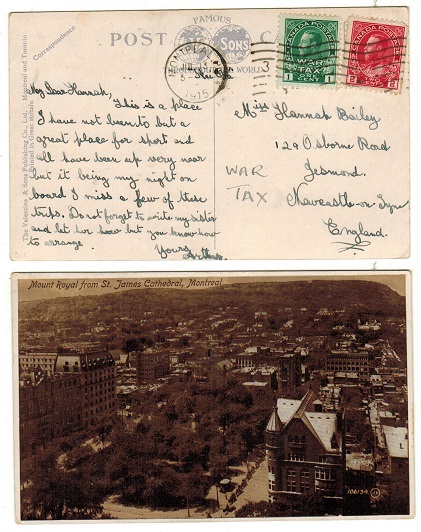 FAMOUS
POST
SONS
WORLD
Correspondence
The Valentine & Sons Publishing Co., Ltd., Montreal and Toronto
Printed in Great Britain
MONTREAL
1915
3
CANADA POSTAGE
WAR
TAX
ONE
1 CENT 1
CANADA POSTAGE
2 CENTS
My Dear Hannah,
This is a place
I have not been to but a
great place for sport and
all have been up very near
but it being my night on
board I miss a few of these
trips. Do not forget to write my sister
and let her know but you know how
to arrange.
Yours
Miss Hannah Bailey
129 Osborne Road
Jesmond.
Newcastle-on-Tyne
England.
WAR
TAX
Mount Royal from St. James Cathedral, Montreal
106139